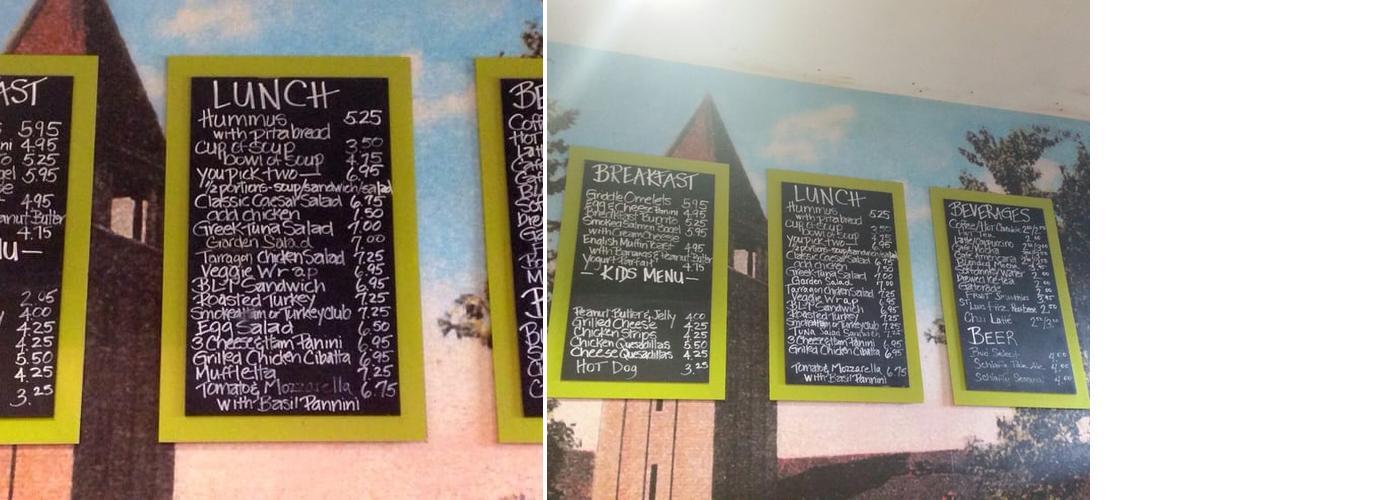 AST
5.95
ni 4.95
o. 5.25
gel 5.95
4.95
anut Butter
4.75
4.00
4.25
4.25
5.50
4.25
3.25
LUNCH
Hummus 5.25
with pita bread
Cup of soup 3.50
bowl of soup 4.75
you pick two 6.95
1/2 portions-soup/sandwich/salad
Classic Caesar Salad 6.75
add chicken 1.50
Greek Tuna Salad 7.00
Garden Salad 7.00
Tarragon Chicken Salad 7.25
Veggie Wrap 6.95
BLT Sandwich 6.95
Roasted Turkey 7.25
Smoked Ham or Turkey Club 7.25
Egg Salad 6.50
3 Cheese & Ham Panini 6.95
Grilled Chicken Cibatta 6.95
Muffletta 7.25
Tomato & Mozzarella 6.75
with Basil Pannini
BREAKFAST
Griddle Omelets 5.95
Egg & Cheese Panini 4.95
Breakfast Burrito 5.25
Smoked Salmon Bagel 5.95
with Cream Cheese
English Muffin Toast 4.95
with Bananas & Peanut Butter
Yogurt Parfait 4.75
- KIDS MENU -
Peanut Butter & Jelly 4.00
Grilled Cheese 4.25
Chicken Strips 4.25
Chicken Quesadillas 5.50
Cheese Quesadillas 4.25
HOT Dog 3.25
LUNCH
Hummus 5.25
with pita bread
Cup of soup 3.50
bowl of soup
you pick two 6.95
1/2 portions-soup/sandwich/salad
Classic Caesar Salad 6.75
add chicken 1.50
Greek Tuna Salad 7.00
Garden Salad 7.00
Tarragon Chicken Salad 7.25
Veggie Wrap 6.95
BLT Sandwich 6.95
Roasted Turkey 7.25
Smoked Ham or Turkey Club 7.25
Tuna Salad Sandwich 7.25
3 Cheese & Ham Panini 6.95
Grilled Chicken Cibatta 6.95
Tomato & Mozzarella 6.75
with Basil Pannini
BEVERAGES
Coffee/Hot Chocolate
Hot Tea
Latte/Cappuccino
Cafe Mocha
Cafe Americana
Blended Mocha
Soft drinks/Water 2.00
Brewed Ice Tea 2.00
Gatorade 2.00
Fruit Smoothies 3.45
2.50
Chai Latte
BEER
Bud Select 4.00
Schlafly Pale Ale 4.00
Schlafly Seasonal 4.00